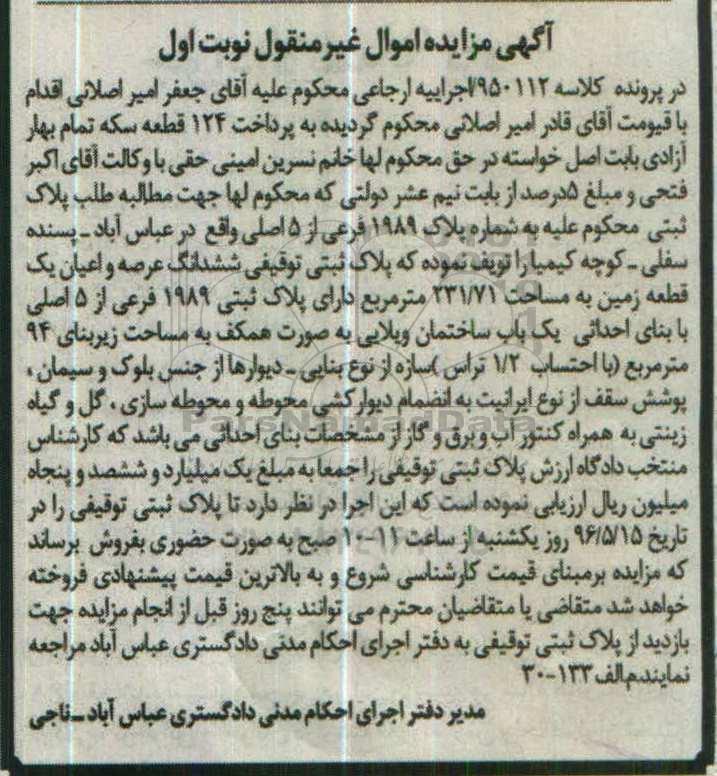 آگهی مزایده اموال غیرمنقول نوبت اول
در پرونده کلاسه ۹۵۰۱۱۲/اجراییه ارجاعی محکوم علیه آقای جعفر امیر اصلانی اقدام
با قیومت آقای قادر امیر اصلانی محکوم گردیده به پرداخت ۱۲۴ قطعه سکه تمام بهار
آزادی بابت اصل خواسته در حق محکوم لها خانم نسرین امینی حقی با وکالت آقای اکبر
فتحی و مبلغ ۵درصد از بابت نیم عشر دولتی که محکوم لها جهت مطالبه طلب پلاک
ثبتی محکوم علیه به شماره پلاک ۱۹۸۹ فرعی از ۵ اصلی واقع در عباس آباد ـ پسنده
سفلی ـ کوچه کیمیا را توقیف نموده که پلاک ثبتی توقیفی ششدانگ عرصه و اعیان یک
قطعه زمین به مساحت ۲۳۱/۷۱ مترمربع دارای پلاک ثبتی ۱۹۸۹ فرعی از ۵ اصلی
با بنای احداثی یک باب ساختمان ویلایی به صورت همکف به مساحت زیربنای ۹۴
مترمربع (با احتساب ۱/۲ تراس )سازه از نوع بنایی ـ دیوارها از جنس بلوک و سیمان ،
پوشش سقف از نوع ایرانیت به انضمام دیوارکشی محوطه و محوطه سازی ، گل و گیاه
زینتی به همراه کنتور آب و برق و گاز از مشخصات بنای احداثی می باشد که کارشناس
منتخب دادگاه ارزش پلاک ثبتی توقیفی را جمعا به مبلغ یک میلیارد و ششصد و پنجاه
میلیون ریال ارزیابی نموده است که این اجرا در نظر دارد تا پلاک ثبتی توقیفی را در
تاریخ ۹۶/۵/۱۵ روز یکشنبه از ساعت ۱۱-۱۰ صبح به صورت حضوری بفروش برساند
که مزایده برمبنای قیمت کارشناسی شروع و به بالاترین قیمت پیشنهادی فروخته
خواهد شد متقاضی یا متقاضیان محترم می توانند پنج روز قبل از انجام مزایده جهت
بازدید از پلاک ثبتی توقیفی به دفتر اجرای احکام مدنی دادگستری عباس آباد مراجعه
نمایند.م.الف ۱۳۳-۳۰
مدیر دفتر اجرای احکام مدنی دادگستری عباس آباد ـ ناجی
ParsNamadData